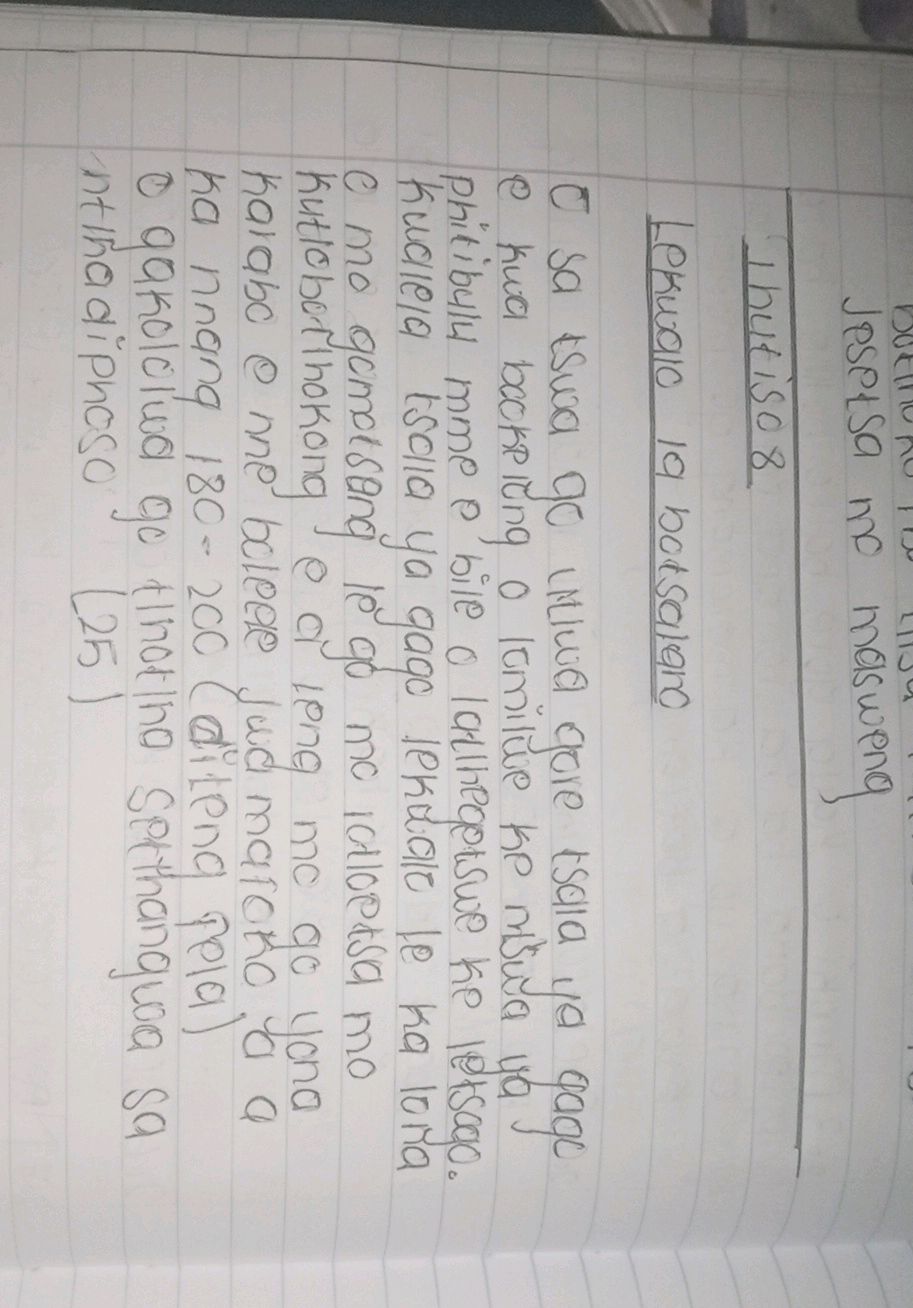 Jesetsa mo masweng
Thutiso 8
Lekwalo la botsalano
O sa tswa go utlwa gore tsala ya gago
e kwa bookelong o lomilwe ke mswa ya
phitibulu mme e bile o latlhegetswe ke letsogo.
Kwalela tsala ya gago lekwalo le ka lona
o mo gomotsang le go mo tlloetsa mo
kutlobotlhokong e a leng mo go yona
Karabo e nne boleele jwa mafoko a a
ka nnang 180 - 200 (diteng fela)
O gakololwa go tlhotlho Setlhangwa sa
ntlhadiphoso [25]